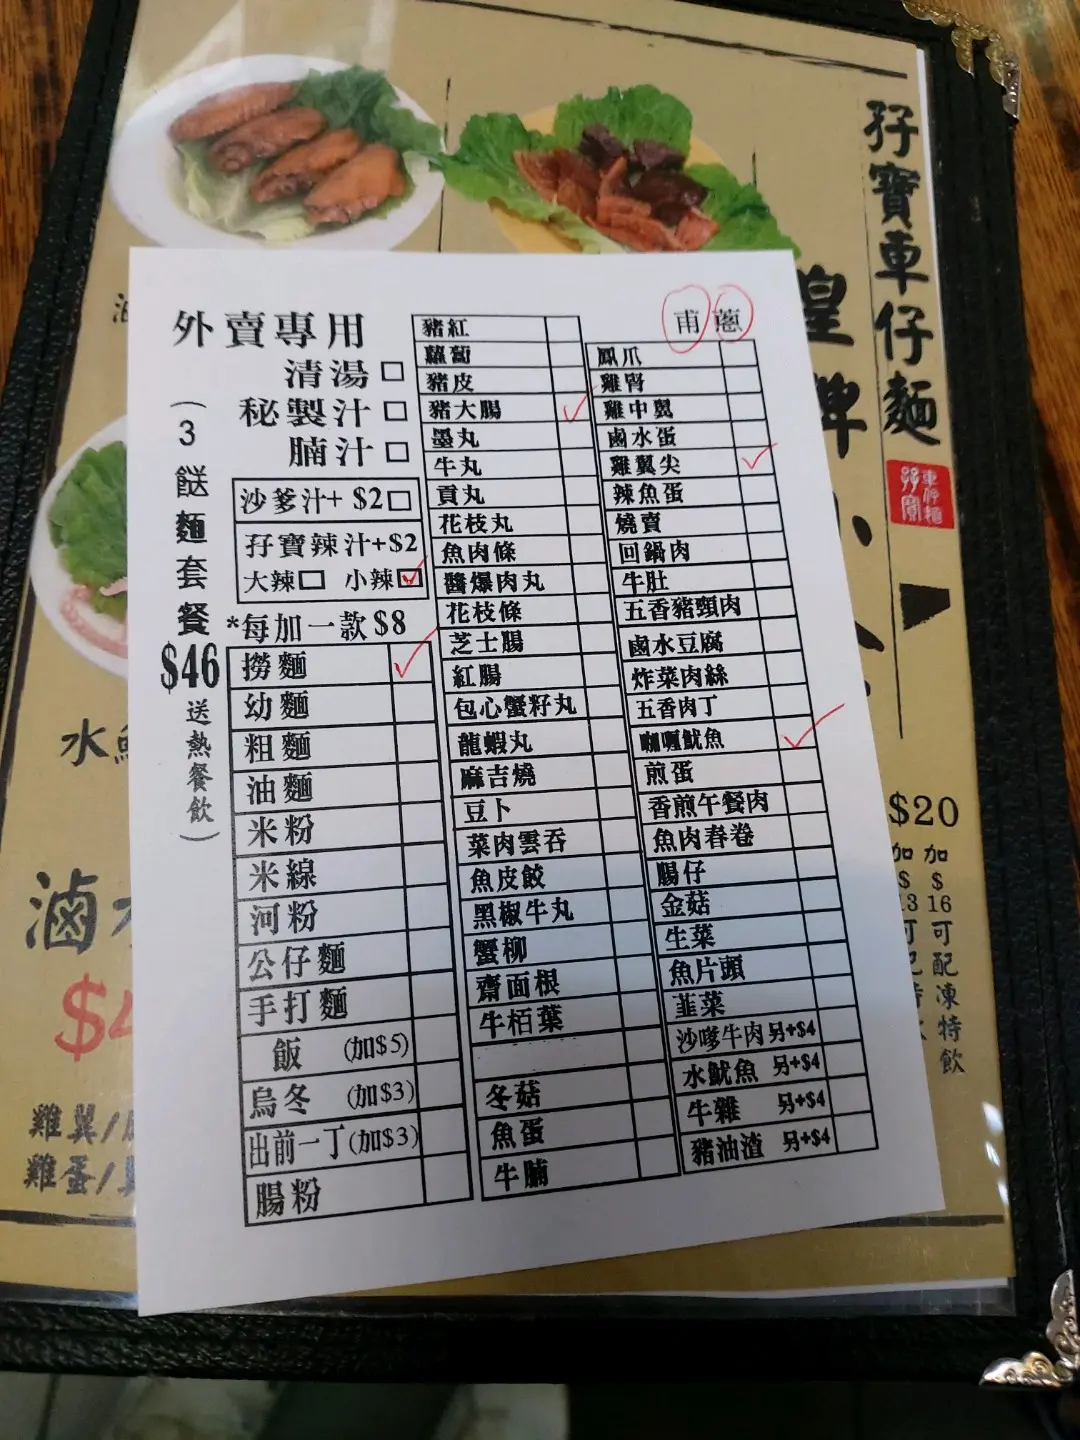 孖寶車仔麵
車仔麵
孖寶
外賣專用
清湯
秘製汁
腩汁
（3餸麵套餐
$46
送熱餐飲）
沙爹汁+ $2
孖寶辣汁+$2
大辣 小辣
*每加一款$8
撈麵
幼麵
粗麵
油麵
米粉
米線
河粉
公仔麵
手打麵
飯 (加$5)
烏冬 (加$3)
出前一丁(加$3)
腸粉
豬紅
蘿蔔
豬皮
豬大腸
墨丸
牛丸
貢丸
花枝丸
魚肉條
醬爆肉丸
花枝條
芝士腸
紅腸
包心蟹籽丸
龍蝦丸
麻吉燒
豆卜
菜肉雲吞
魚皮餃
黑椒牛丸
蟹柳
齋面根
牛栢葉
冬菇
魚蛋
牛腩
甫 蔥
鳳爪
雞腎
雞中翼
鹵水蛋
雞翼尖
辣魚蛋
燒賣
回鍋肉
牛肚
五香豬頸肉
鹵水豆腐
炸菜肉絲
五香肉丁
咖喱魷魚
煎蛋
香煎午餐肉
魚肉春卷
腸仔
金菇
生菜
魚片頭
韮菜
沙嗲牛肉 另+$4
水魷魚 另+$4
牛雜 另+$4
豬油渣 另+$4
$20
加$16可配凍特飲
滷
雞翼/
雞蛋/